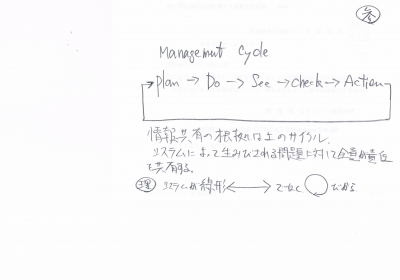 参
Management Cycle
Plan → Do → See → check → Action
情報共有の根拠は上のサイクル.
システムによって生み出される問題に対して全員が責任
を共有する.
理 システムが線形 ⟷ でなく ◯ だから